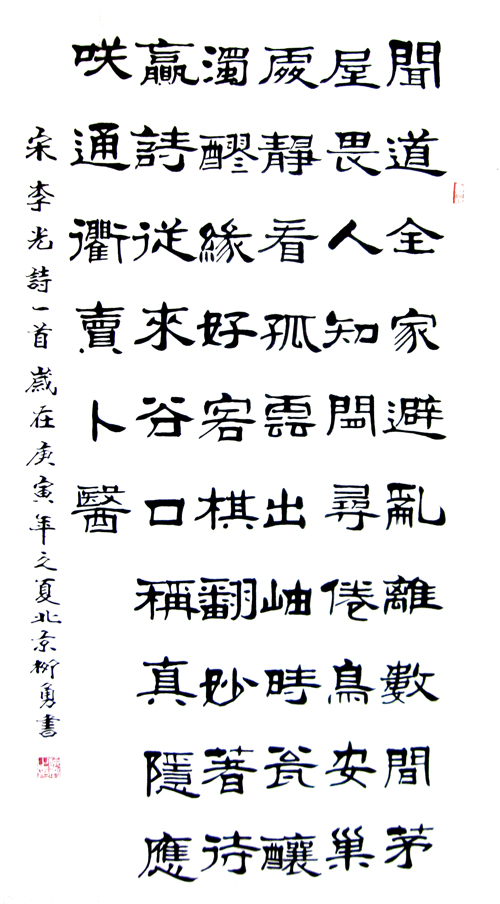 聞道全家避亂離數間茅
屋畏人知閒尋倦鳥安巢
處靜看孤雲出岫時瓮釀
濁醪緣好客棋翻妙著待
贏詩從來谷口稱真隱應
咲通衢賣卜醫
宋李光詩一首歲在庚寅年之夏北京勇書